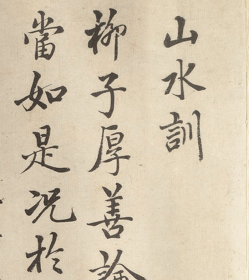 山水訓
柳子厚善論
當如是况於